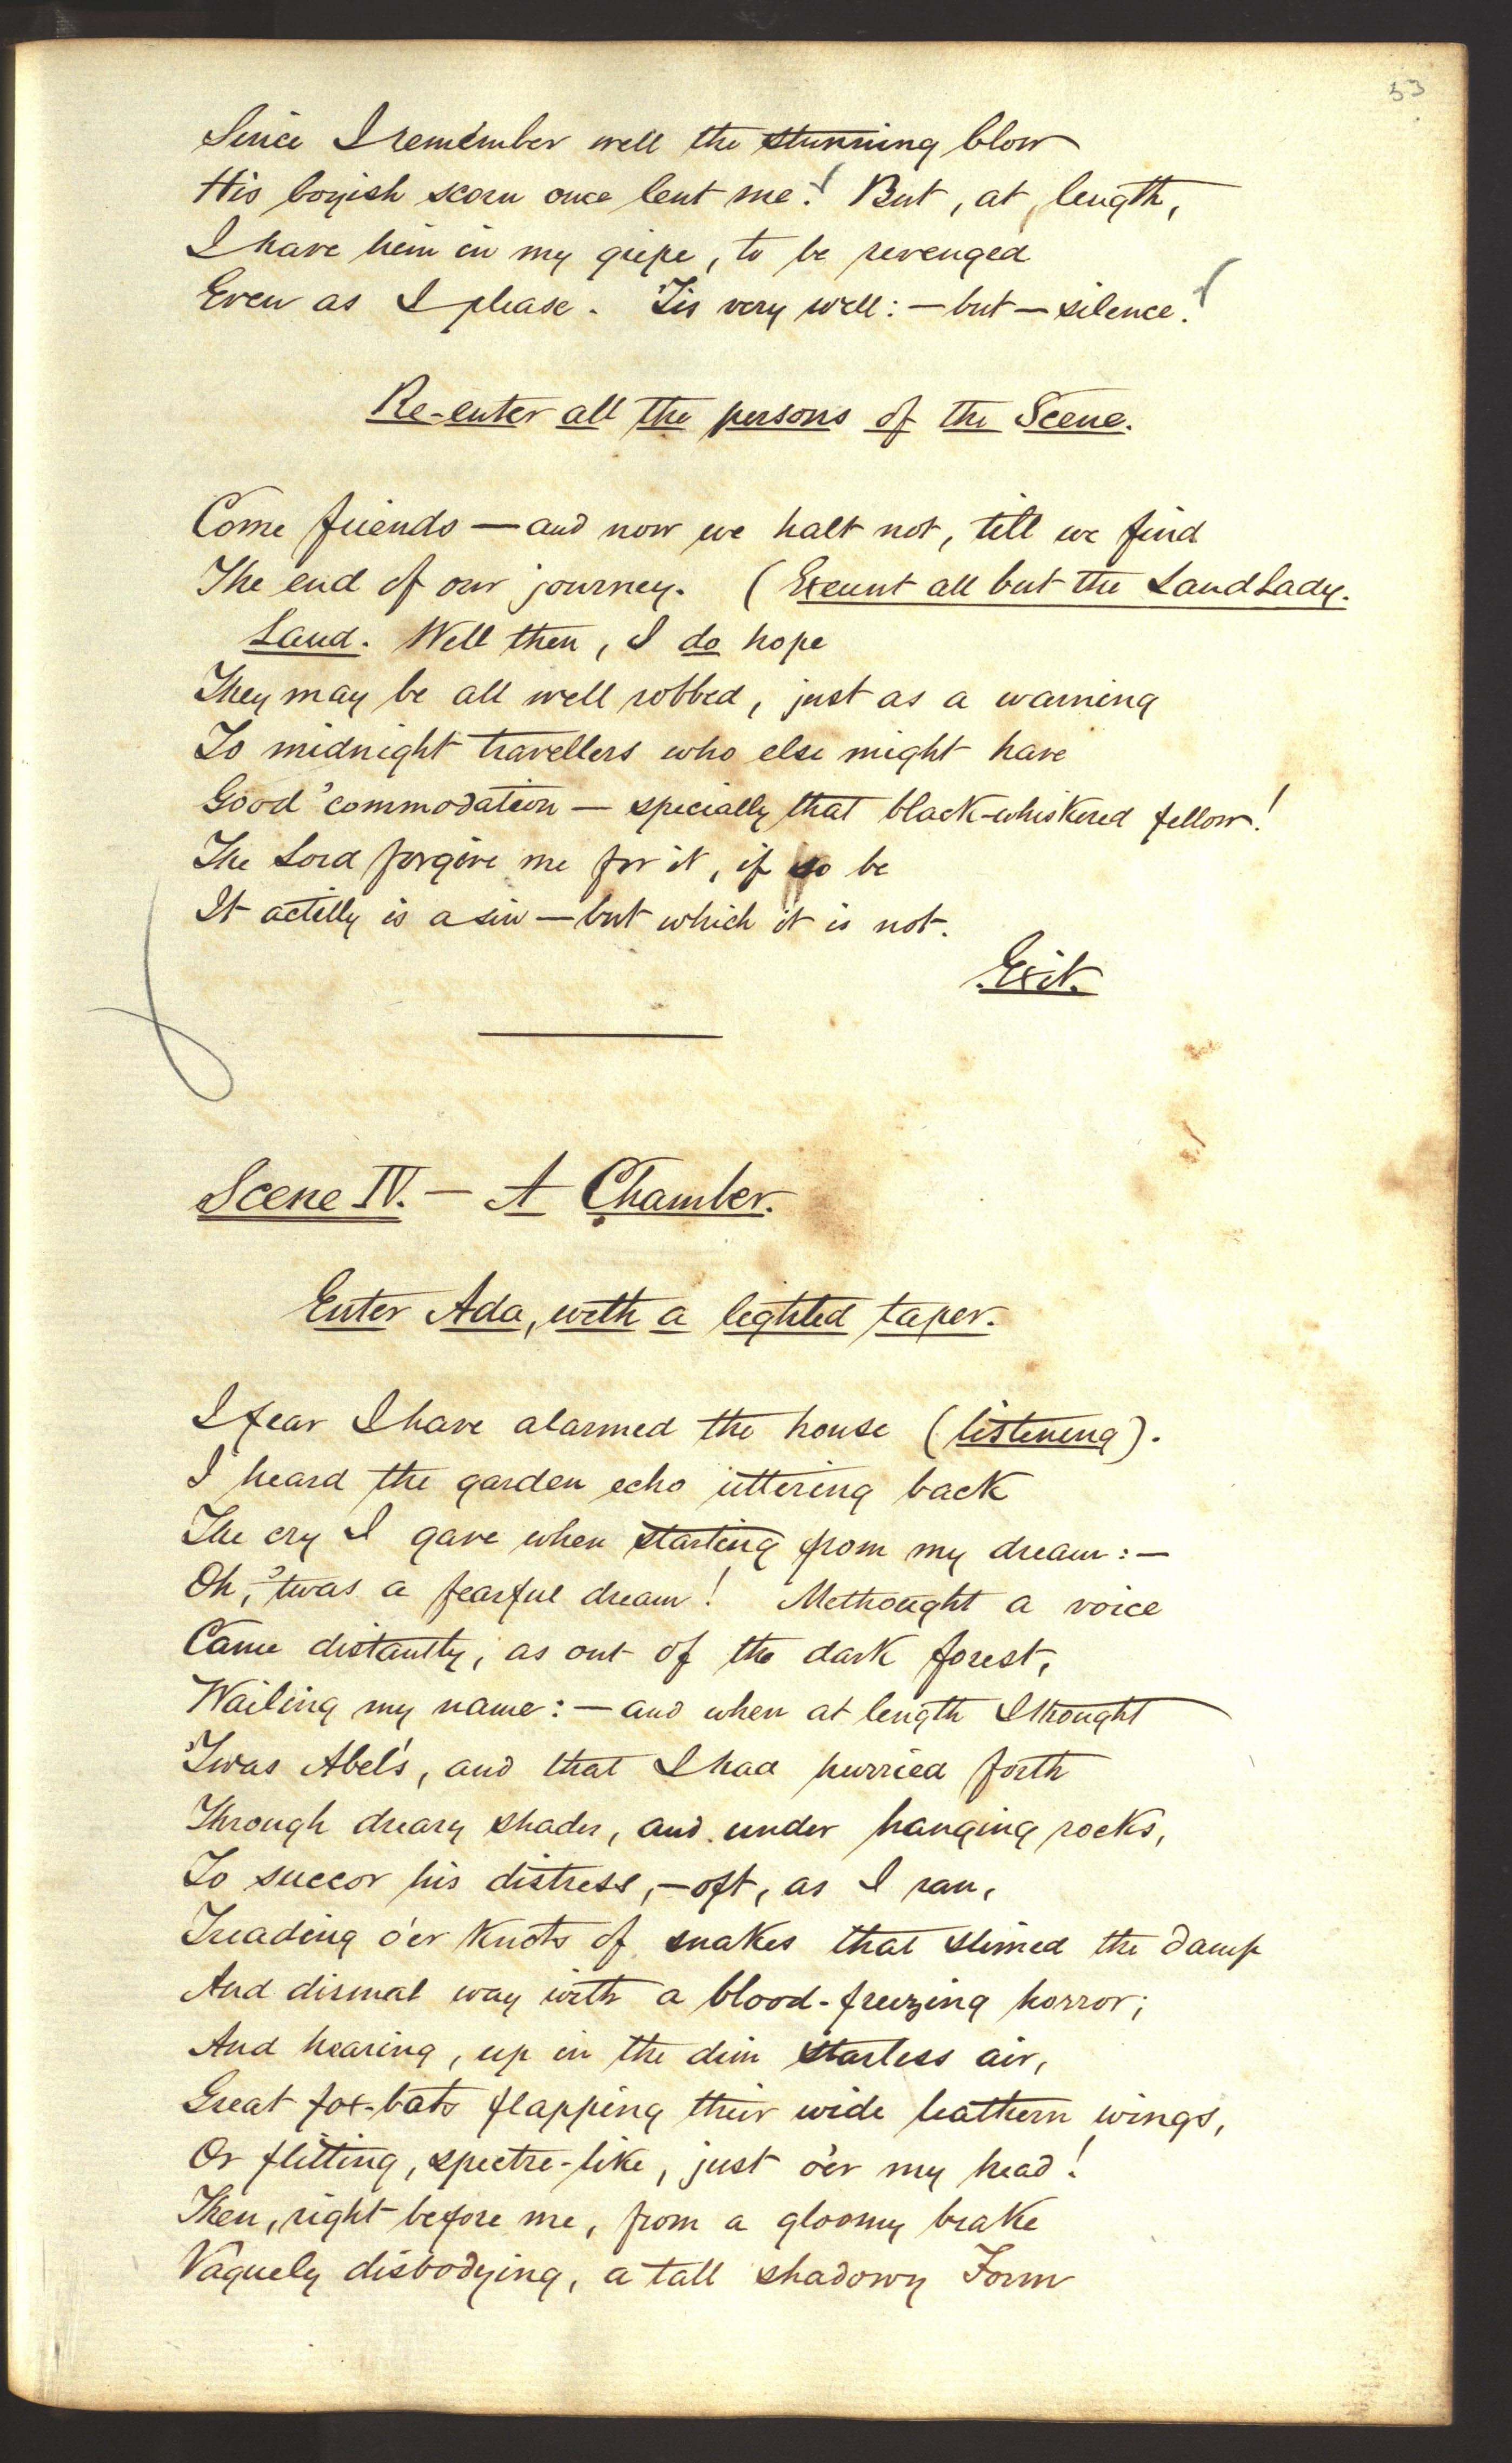 53
Since I remember well the stunning blow
His boyish scorn once lent me! But, at length,
I have him in my gripe, to be revenged
Even as I please. 'Tis very well: — but — silence!
Re-enter all the persons of the Scene.
Come friends — and now we halt not, till we find
The end of our journey. (Exeunt all but the LandLady.
Land. Well then, I do hope
They may be all well robbed, just as a warning
To midnight travellers who else might have
Good 'commodation — specially that black-whiskered fellow!
The Lord forgive me for it, if so be
It actilly is a sin — but which it is not.
Exit.
Scene IV. — A Chamber.
Enter Ada, with a lighted taper.
I fear I have alarmed the house (listening).
I heard the garden echo uttering back
The cry I gave when starting from my dream: —
Oh, 'twas a fearful dream! Methought a voice
Came distantly, as out of the dark forest,
Wailing my name: — and when at length I thought
'Twas Abel's, and that I had hurried forth
Through dreary shades, and under hanging rocks,
To succor his distress, — oft, as I ran,
Treading o'er knots of snakes that slimed the damp
And dismal way with a blood-freezing horror;
And hearing, up in the dim starless air,
Great fox-bats flapping their wide leathern wings,
Or flitting, spectre-like, just o'er my head!
Then, right before me, from a gloomy brake
Vaguely disbodying, a tall shadowy Form